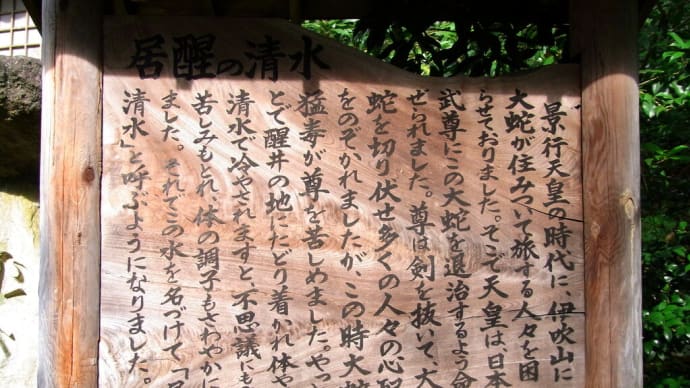 居醒の清水
景行天皇の時代に伊吹山に
大蛇が住みついて旅する人々を困
らせておりました。そこで天皇は日本
武尊にこの大蛇を退治するよう命
ぜられました。尊は剣を抜いて、大
蛇を切り伏せ多くの人々の心配
をのぞかれましたが、この時大蛇
猛毒が尊を苦しめました。やっ
とで醒井の地にたどり着かれ体や
清水で冷やされますと、不思議にも
苦しみもとれ、体の調子もさわやかに
ました。それでこの水を名づけて「居
清水」と呼ぶようになりました。